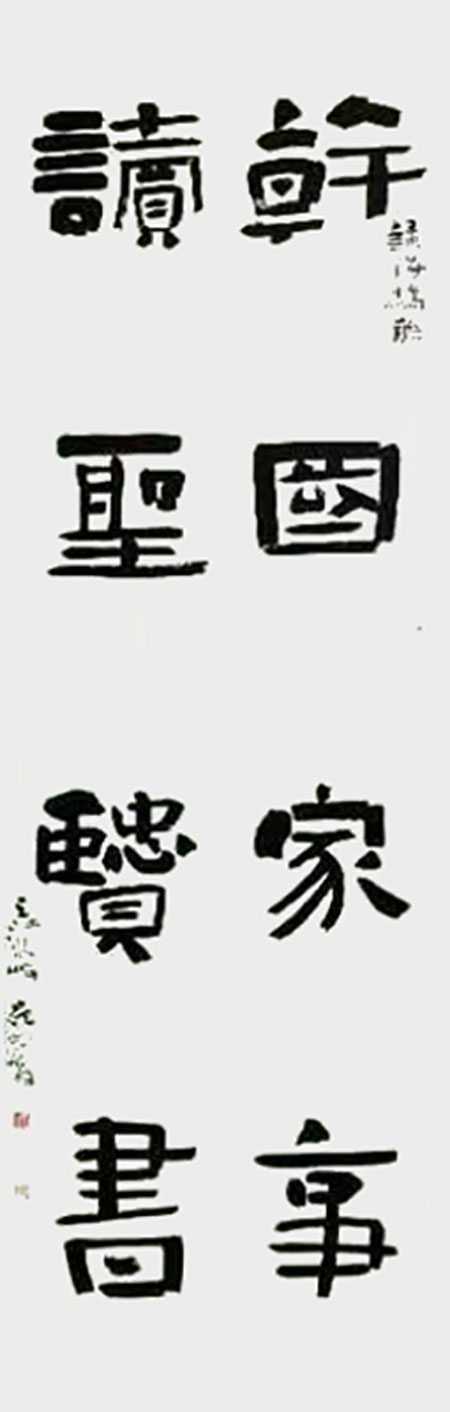 幹國家事
讀聖賢書